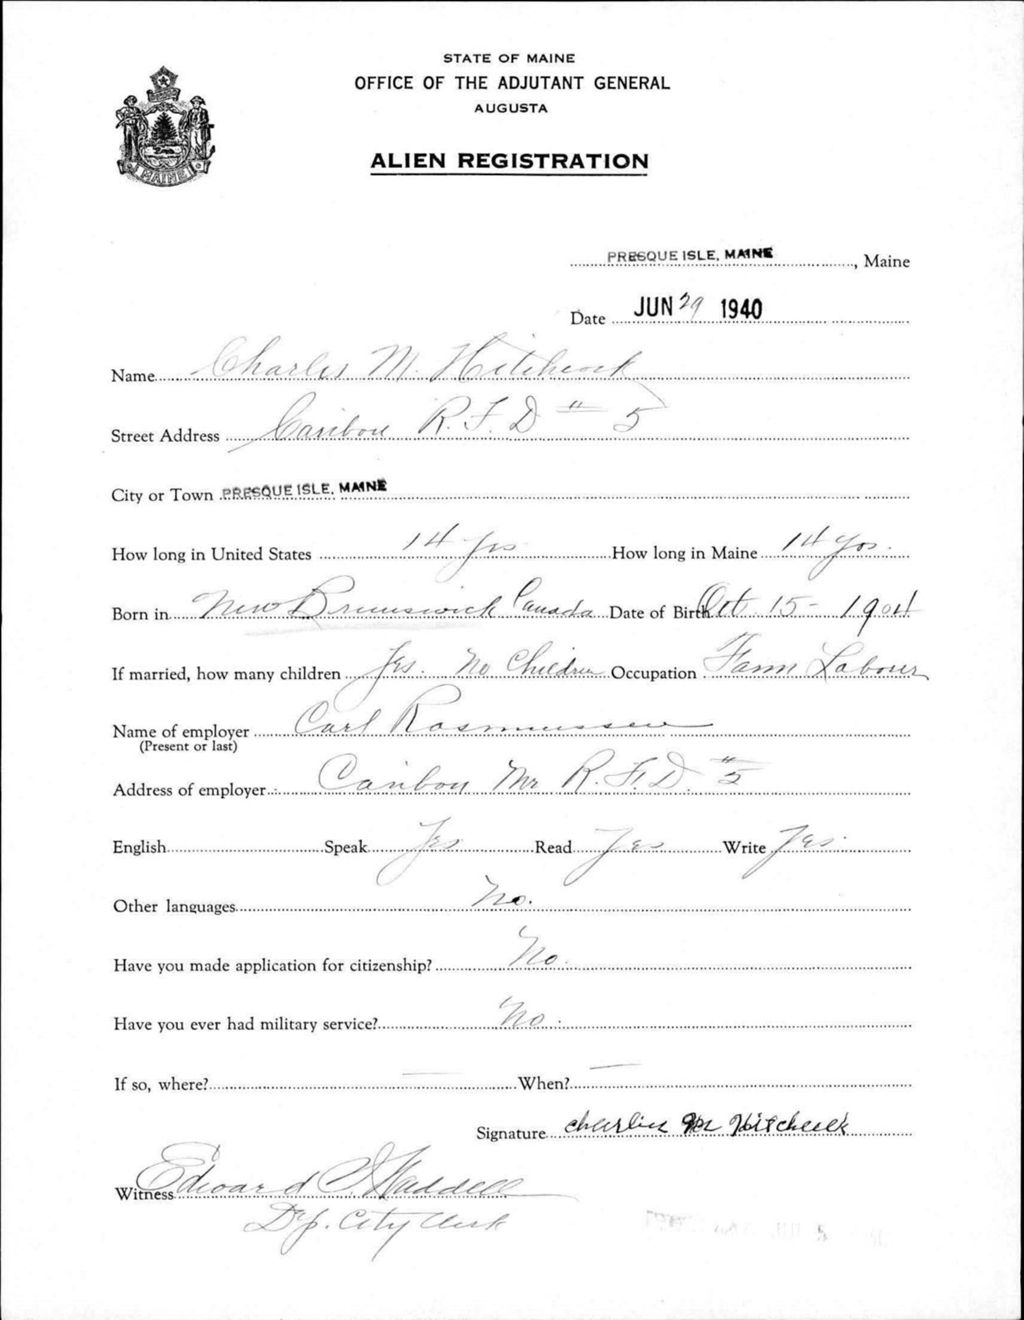 STATE OF MAINE
OFFICE OF THE ADJUTANT GENERAL
AUGUSTA
ALIEN REGISTRATION
MAINE
PRESQUE ISLE, MAINE, Maine
Date JUN 29 1940
Name Charles M. Hitchcock
Street Address Caribou R.F.D # 5
City or Town PRESQUE ISLE, MAINE
How long in United States 14 yrs How long in Maine 14 yrs.
Born in New Brunswick Canada Date of Birth Oct 15 - 1904
If married, how many children Yes. No Children Occupation Farm Labourer
Name of employer Carl Rasmussen
(Present or last)
Address of employer Caribou Me R.F.D. # 5
English Speak Yes Read Yes Write Yes.
Other languages No.
Have you made application for citizenship? No.
Have you ever had military service? No.
If so, where? — When? —
Signature Charles M Hitchcock
Witness Edward Waddell
Dep. City Clerk